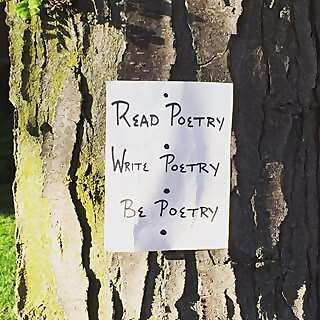 Read Poetry
Write Poetry
Be Poetry